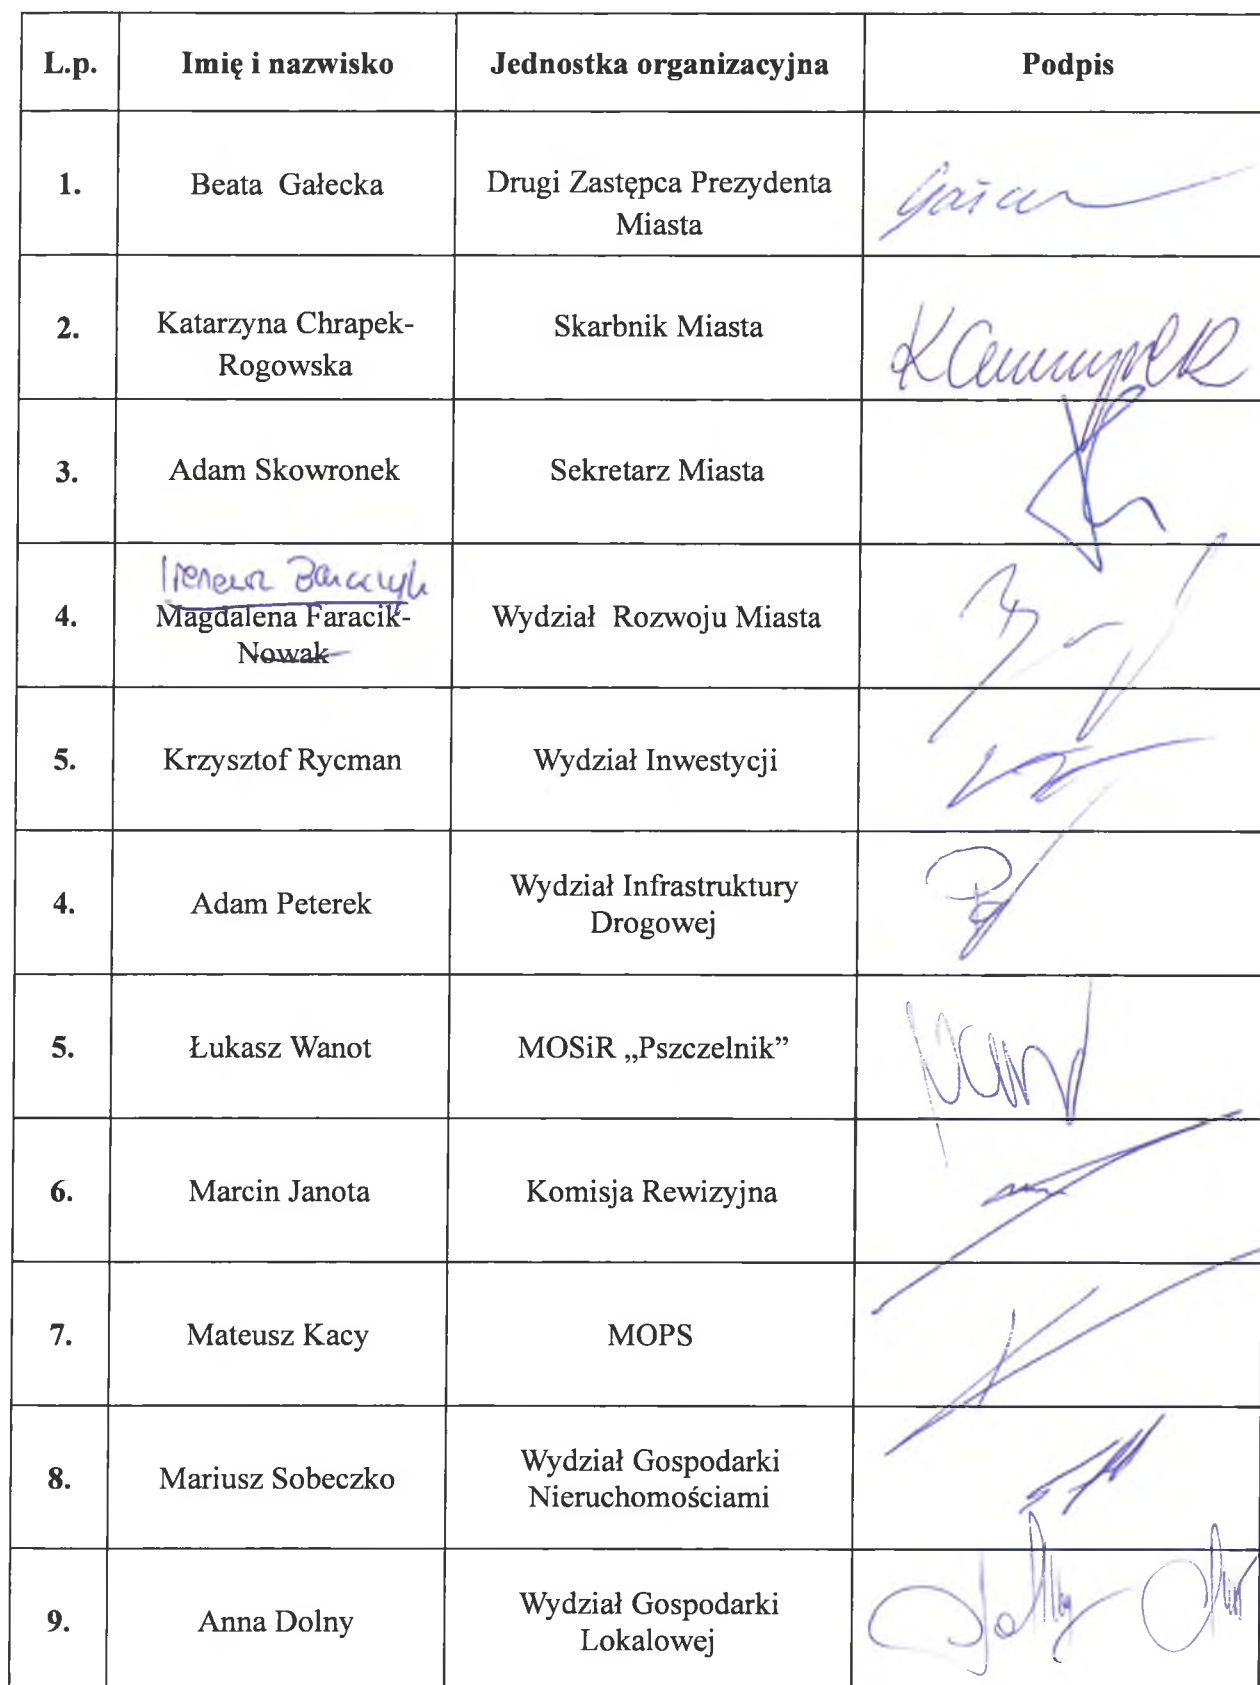 L.p. Imię i nazwisko Jednostka organizacyjna Podpis
1. Beata Gałecka Drugi Zastępca Prezydenta
Miasta
2. Katarzyna Chrapek-
Rogowska Skarbnik Miasta
3. Adam Skowronek Sekretarz Miasta
4. Magdalena Faracik-
Nowak Wydział Rozwoju Miasta
5. Krzysztof Rycman Wydział Inwestycji
4. Adam Peterek Wydział Infrastruktury
Drogowej
5. Łukasz Wanot MOSiR „Pszczelnik”
6. Marcin Janota Komisja Rewizyjna
7. Mateusz Kacy MOPS
8. Mariusz Sobeczko Wydział Gospodarki
Nieruchomościami
9. Anna Dolny Wydział Gospodarki
Lokalowej